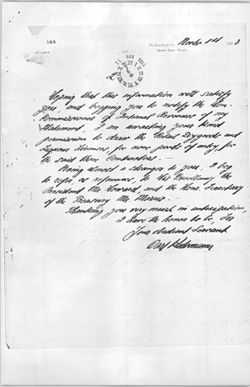 Hoping that this information will satisfy
you, and begging you to notify the Hon.
Commissioner of Internal Revenues of my
Statement, I am awaiting your kind
permission to draw the Retail Drygoods and
Liquors licenses for new ports of entry for
the said
Being almost a stranger to you, I beg
to refer as references, to His Excellency the
President Mr Howard and the Hon. Secretary
of the Treasury Mr Morris.
Thanking you very much in anticipation,
I have the honor to be, Sir
Your obedient Servant